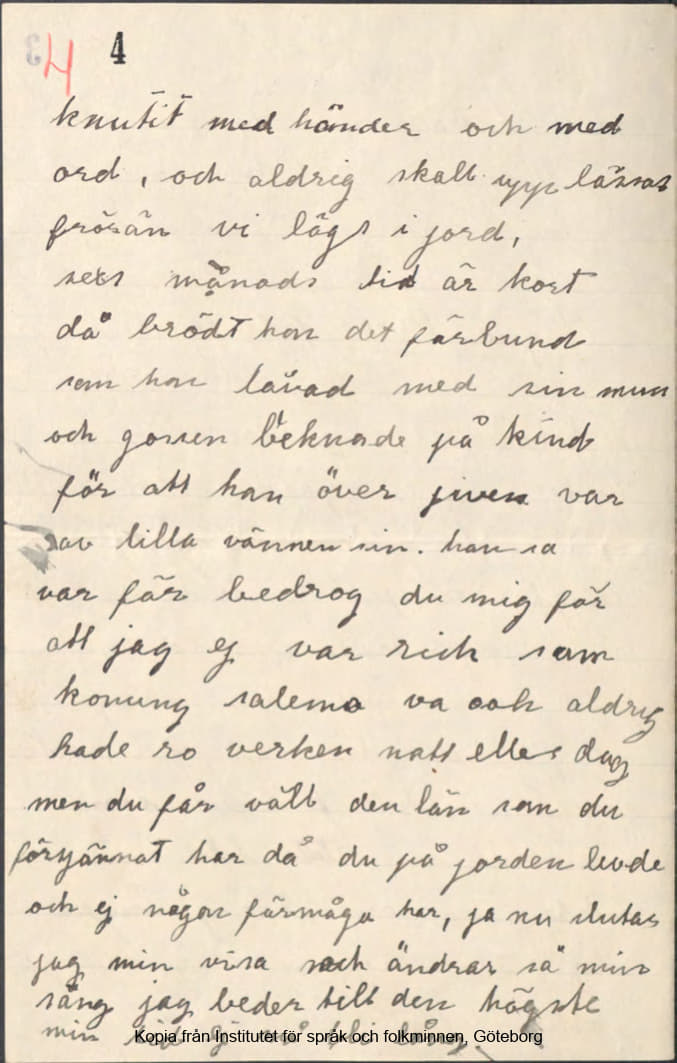 4 4
knutit med händer och med
ord, och aldrig skall upp låssas
frösän vi lägs i jord,
sexs månads tid är kort
då brödt hon det färbund
som hon låvad med sin mun
och gossen bleknade på kind
för att han över given var
av lilla vännen sin. han sa
var fär bedrog du mig för
att jag ej var rich som
konung salemo va ook aldrig
hade ro verken natt eller dag
men du får väll den län som du
förtjännat har då du på jorden levde
och ej någon färmåga har, ja nu slutar
jag min visa och ändrar så min
sång jag beder till den högste
min ej må bli lång.
Kopia från Institutet för språk och folkminnen, Göteborg